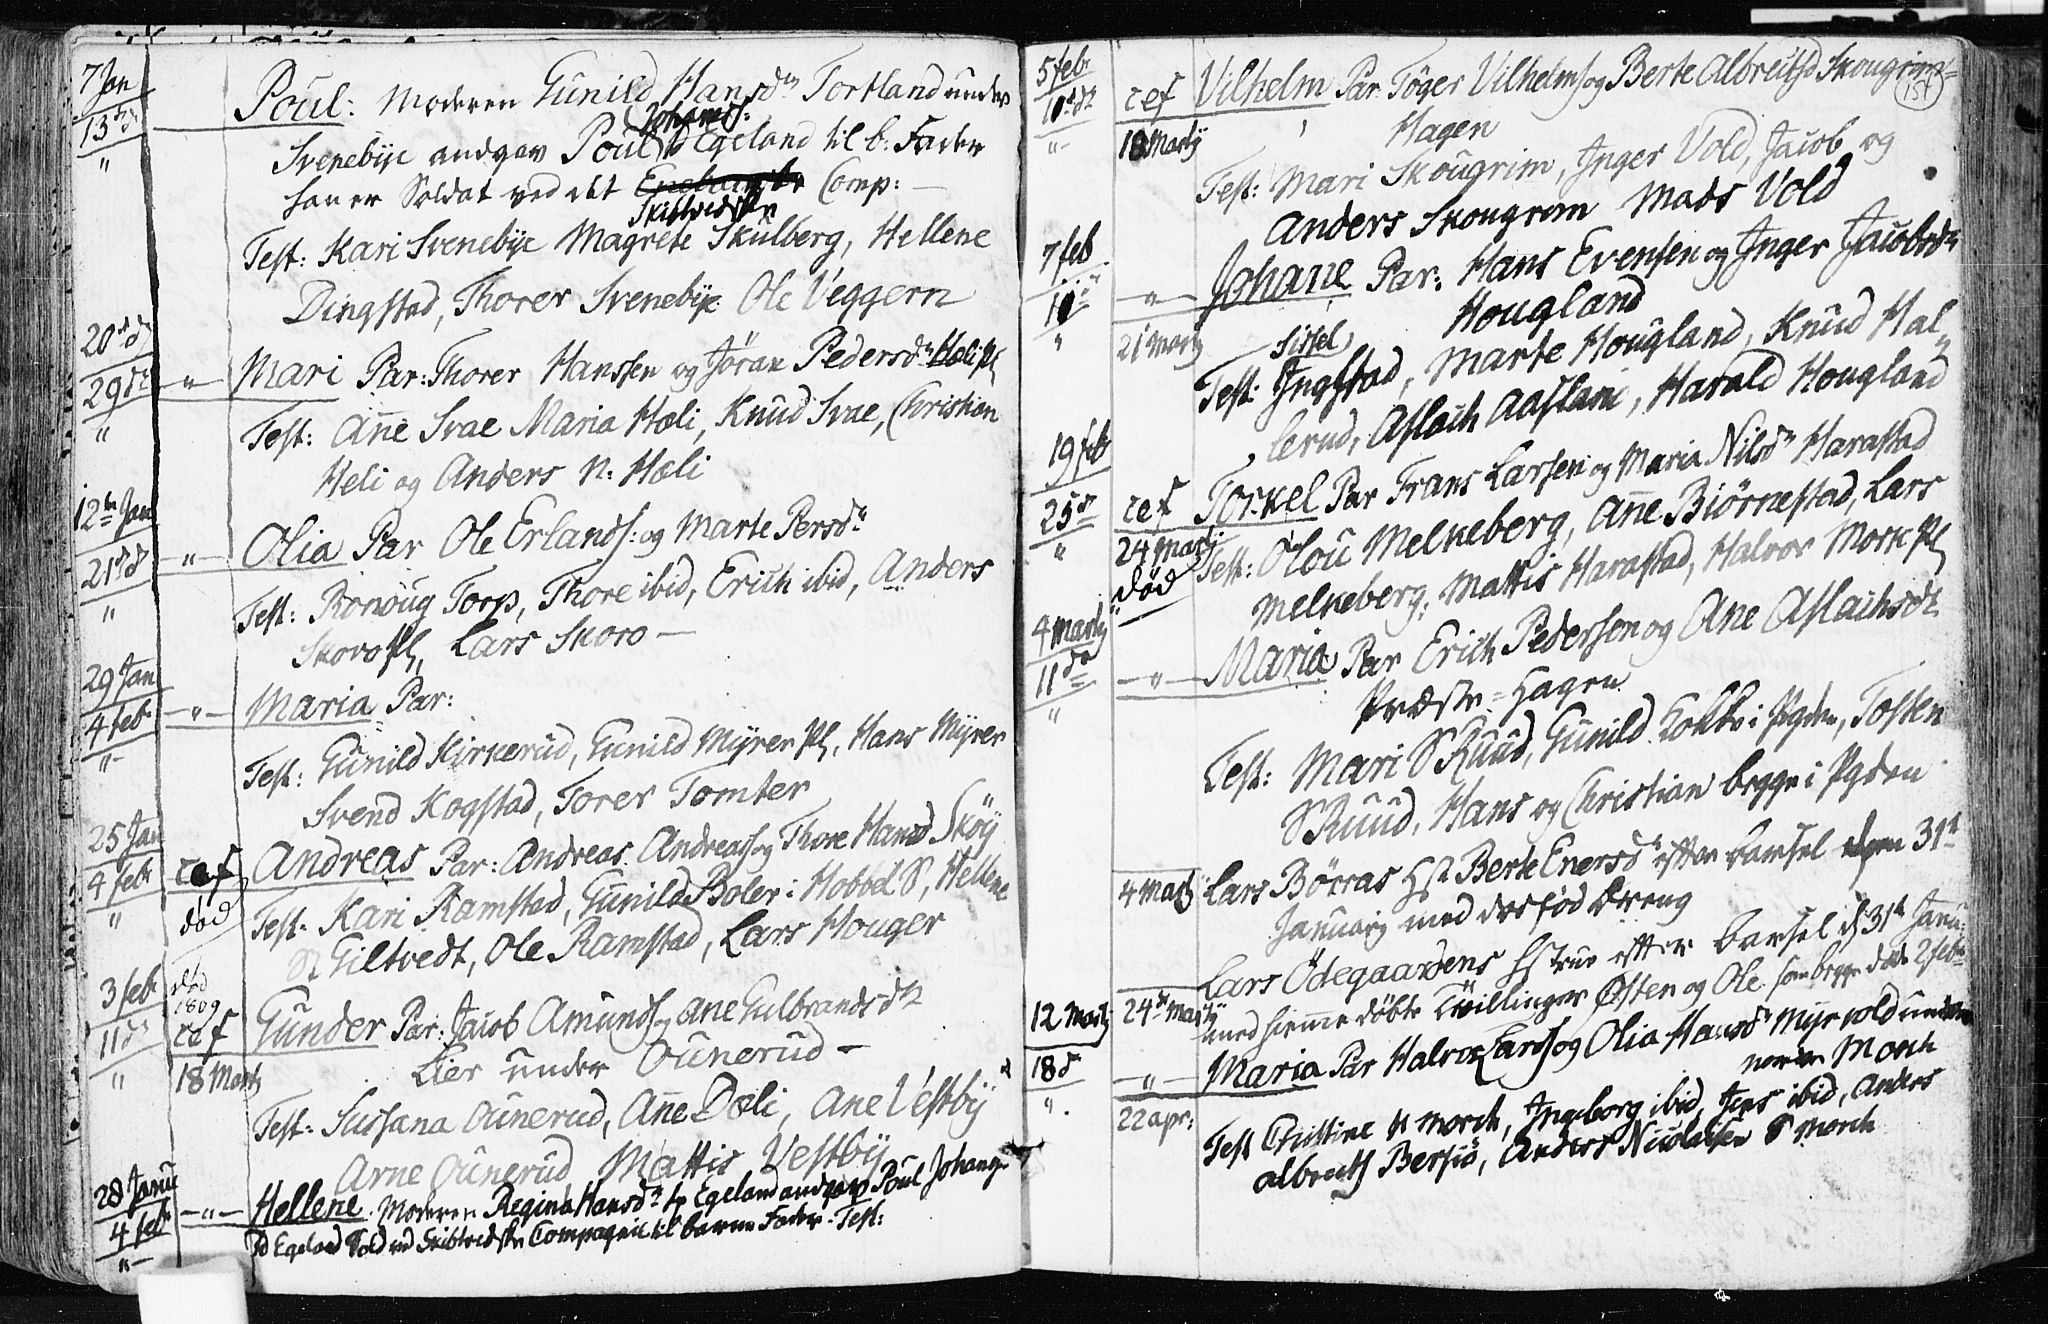 7 Jan
13 d
"
Poul: Moderen Gunild Hansdn Tortland under
Johans:
Svenebye andgav Poul Egeland til b: Fader
han er Soldat ved det Comp: —
Skibtvedske
Test: Kari Svenebye Magrete Skulberg, Hellene
Dingstad, Thorer Svenebye Ole Veggern
20 d
29 d
"
— " — Mari Par: Thorer Hanssen og Jöran Pedersdn Hæli Pl
Test: Ane Svae Maria Hæli, Knud Svae, Christian
Heli og Anders N: Hæli
12 Jan
21 d
"
— " — Olia Par Ole Erlands: og Marte Persdn
Test: Ronoug Torp, Thore ibid, Erich ibid, Anders
Skoro Pl, Lars Skoro —
29 Jan
4 feb
"
— " — Maria Par:
Test: Gunild Kirkerud, Gunild Myrer Pl, Hans Myrer
Svend Kogstad, Torer Tomter
25 Jan
4 feb
"
cef Andreas Par: Andreas Andreas og Thore Hansd Sköy
død
Test: Kari Ramstad, Gunild Boler i Hobbel S, Hellene
S Giltvedt, Ole Ramstad, Lars Houger
3 feb
11 d
"
død
1809
cef Gunder Par: Jacob Amunds og Ane Gulbrandsdr
18 Marty
Lier under Ounerud —
Test: Sussana Ounerud, Ane Dæli, Ane Vestby
Arne Ounerud, Mattis Vestby
28 Janu
4 feb
"
— " — Hellene. Moderen Regina Hansdn Egeland andgav Poul Johans
Egeland Sold ved Skibtvedske Compagnie til barne Fader. Test:
154
5 feb
10 d
"
cef Vilhelm Par Töger Vilhelms og Berte Albretsd Skougrim=
18 Marty
Hagen
Test: Mari Skougrim, Inger Vold, Jacob og
Anders Skougrim Mads Vold
7 feb
11 d
"
— " — Johane Par: Hans Evensen og Inger Jacobsdn
21 Marty
Hougland
Sissel
Test: Ingstad, Marte Hougland, Knud Hal=
lerud, Aslach Aasland, Harald Hougland
19 feb
25 d
"
cef Torkel Par Frans Larsen og Maria Nilsdn Harastad
24 Marty
død
Test: Olou Melkeberg, Ane Biörnestad, Lars
Melkeberg, Mattis Harastad, Halvor Mork Pl
4 Marty
11 d
"
— " — Maria Par Erich Pedersen og Ane Aslachsdr
Præste=Hagen
Test: Mari S Ruud, Gunild Kokke i Pgden, Tosten
S Ruud, Hans og Christian begge i Pgden
4 Marty Lars Börras Hst Berte Enersdr efter barsel den 31t
January med dødfød Dreng
24 Marty Lars Ödegaardens Hstrue efter barsel d 31t Janu:
med hiemmedøbte Tvillinger Østen og Ole som begge døde 2 febr
12 Marty
18 d
"
— " — Maria Par Halvor Lars og Olia Hansdn Myrvold under
22 apr:
nerdr Morch
Test Christine N Morch, Ingeborg ibid, Jens ibid, Anders
Albrects Bersiö, Anders Nicolaisen S Morch